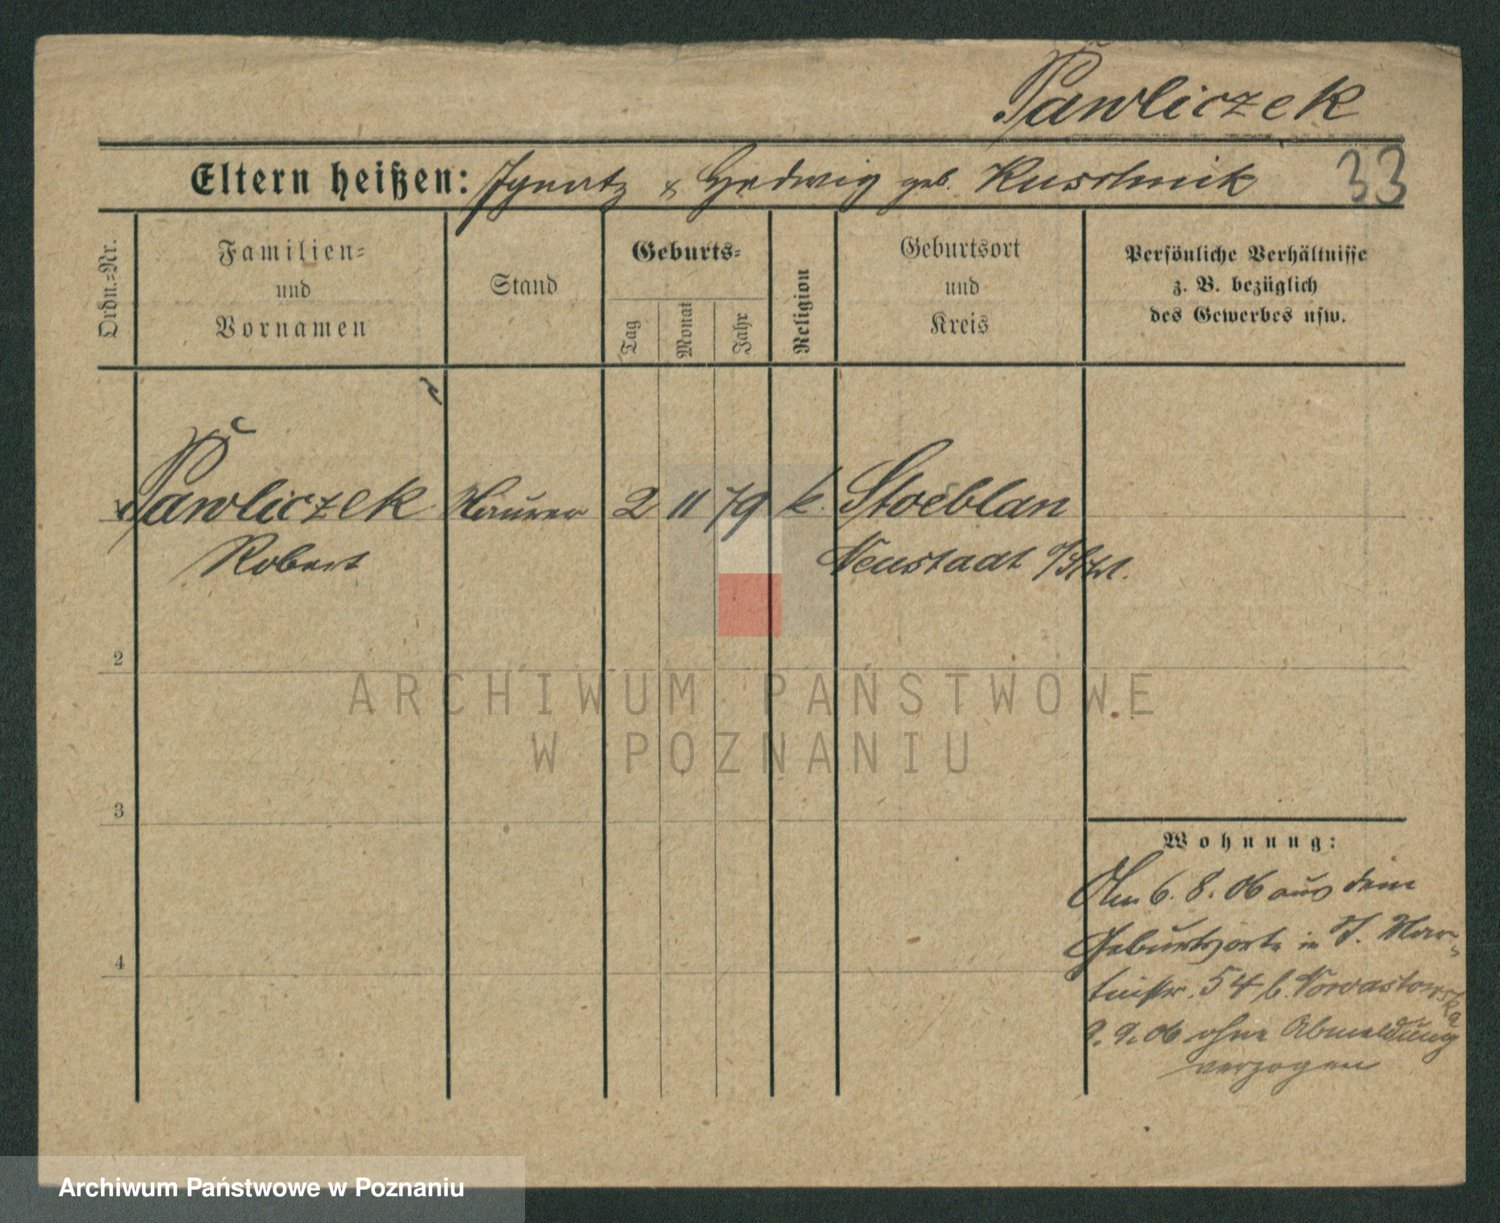 Pawliczek
Eltern heißen: Ignatz & Hedwig geb. Kuschnik
33
Ordn.=Nr.
Familien=
und
Vornamen
Stand
Geburts=
Tag
Monat
Jahr
Religion
Geburtsort
und
Kreis
Persönliche Verhältnisse
z. B. bezüglich
des Gewerbes usw.
Pawliczek Maurer 2 11 79 k. Stoeblau
Robert Neustadt
2
3
4
ARCHIWUM PAŃSTWOWE
W POZNANIU
Wohnung:
Am 6. 8. 06 aus dem
Geburtsorte in J. Mar-
tinstr. 54 b. Nowastowska
9. 06 ohne Abmeldung
verzogen
Archiwum Państwowe w Poznaniu